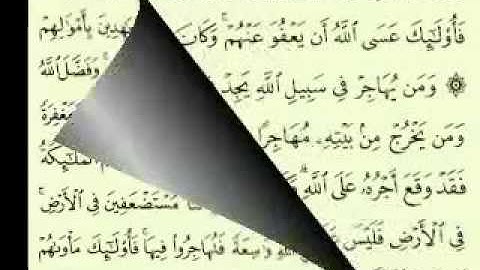 فَأُوْلَٰٓئِكَ عَسَى ٱللَّهُ أَن يَعۡفُوَ عَنۡهُمۡۚ وَكَانَ هِدِينَ بِأَمۡوَٰلِهِمۡ
۞ وَمَن يُهَاجِرۡ فِي سَبِيلِ ٱللَّهِ يَجِدۡ وَفَضَّلَ ٱللَّهُ
وَمَن يَخۡرُجۡ مِنۢ بَيۡتِهِۦ مُهَاجِرًا
فَقَدۡ وَقَعَ أَجۡرُهُۥ عَلَى ٱللَّهِۗ مُسۡتَضۡعَفِينَ فِي ٱلۡأَرۡضِۚ
فِي ٱلۡأَرۡضِ فَلَيۡسَ ٱللَّهِ وَٰسِعَةٗ فَتُهَاجِرُواْ فِيهَاۚ فَأُوْلَٰٓئِكَ مَأۡوَىٰهُمۡ